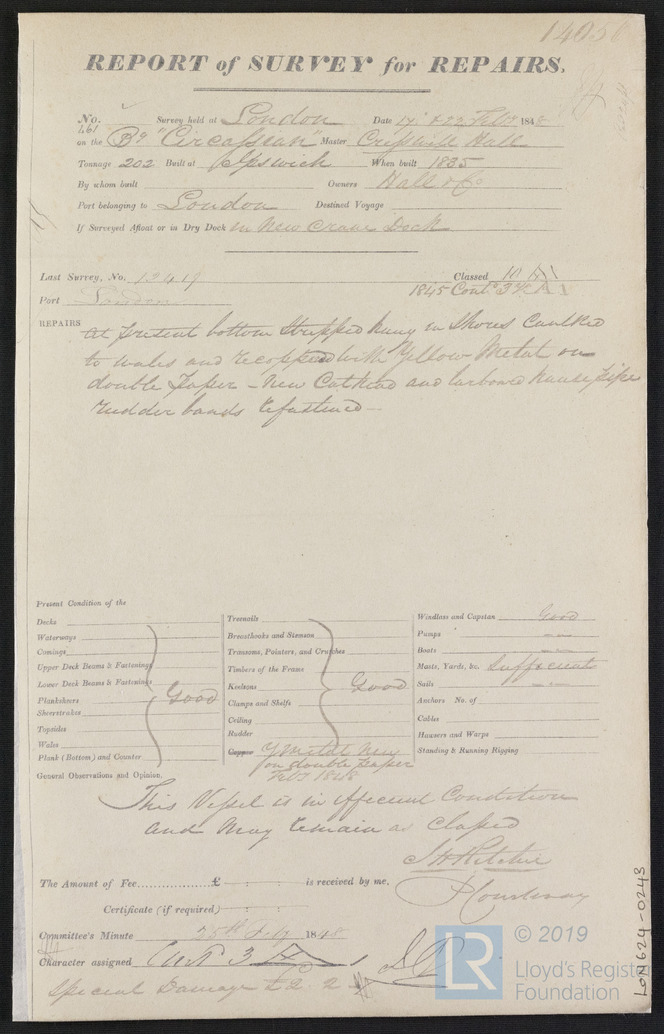 14050
REPORT of SURVEY for REPAIRS.
No. 461 Survey held at London Date 17 & 22 Feby 1848
on the Bg "Circassian" Master Hall
Tonnage 202 Built at Ipswich When built 1835
By whom built Owners Hall & Co
Port belonging to London Destined Voyage
If Surveyed Afloat or in Dry Dock in New Crane Dock
Last Survey, No. 13419 Classed 10 A1
Port London 1845 Contd 3 Yrs A1
REPAIRS At present bottom stripped hung in Shores Caulked
to wales and recoppered with Yellow Metal on
double Paper - New Cathead and larboard hawse pipe
rudder bands refastened -
Present Condition of the
Decks
Waterways
Comings
Upper Deck Beams & Fastenings
Lower Deck Beams & Fastenings
Planksheers Good
Sheerstrakes
Topsides
Wales
Plank (Bottom) and Counter
Treenails
Breasthooks and Stemson
Transoms, Pointers, and Crutches
Timbers of the Frame
Keelsons Good
Clamps and Shelfs
Ceiling
Rudder
Copper Y Metal New
on double paper
Feby 1848
Windlass and Capstan Good
Pumps — —
Boats — —
Masts, Yards, &c. Sufficient
Sails — —
Anchors No. of
Cables
Hawsers and Warps
Standing & Running Rigging
General Observations and Opinion.
This Vessel is in efficient Condition
and may remain as Classed
J H Ritchie
P Courtenay
The Amount of Fee............... £ is received by me,
Certificate (if required)
Committee's Minute 25th Feby 1848
Character assigned Cont 3 A 1
Special Damage £2. 2
LON624-0243
LR
© 2019
Lloyd's Register
Foundation